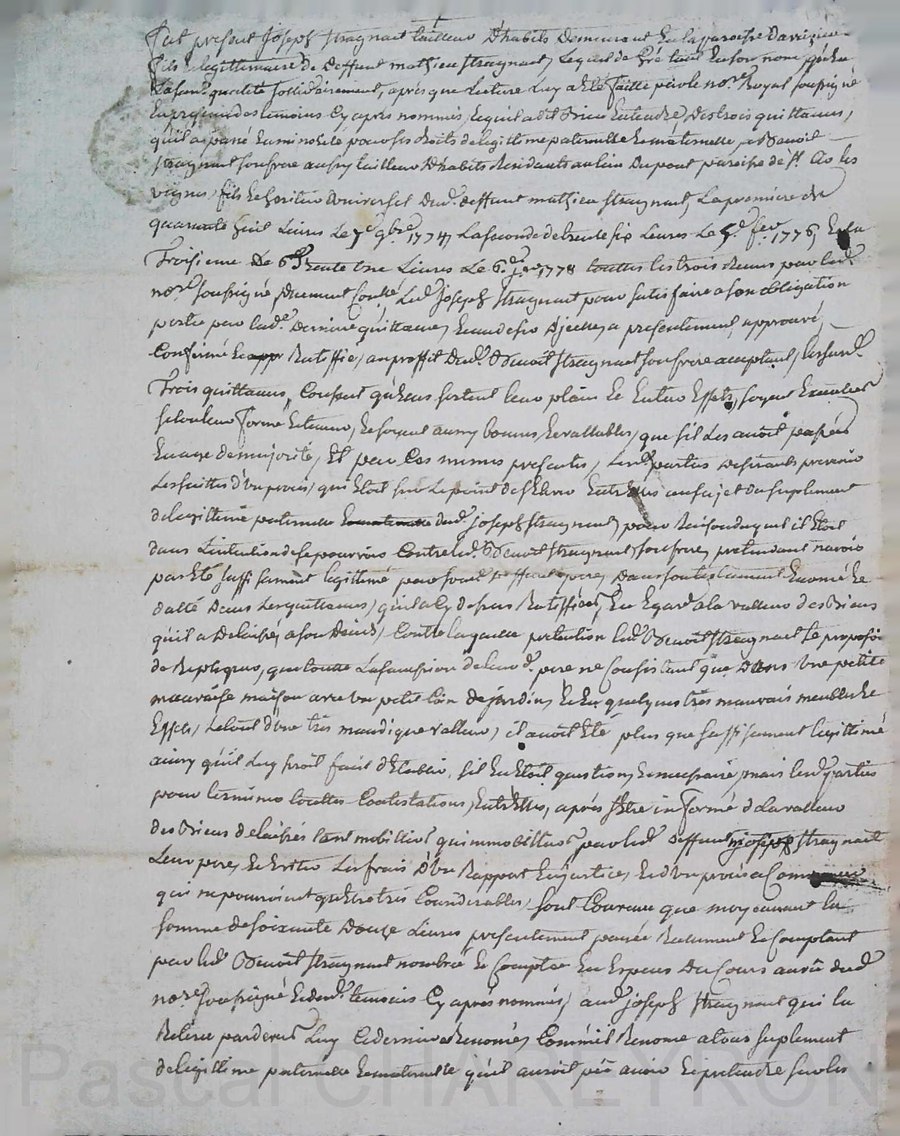 Fut présent Joseph Straynard tailleur d'habits demeurant en la paroisse
fils & legittimaire de deffunt mathieu Straynard, lequel de gré tant en son nom qu'en
lasusd. qualité sollidairement, apres que lecture luy a été faitte par le nore. Royal soussigné
en presence des temoins cy après nommés, lequel a dit bien entendre, des trois quittances,
qu'il a passé en minorité, pour ses droits de legittime paternelle & maternelle, a Benoit
Straynard son frere aussy tailleur d'habits residant au lieu du pont paroisse de St. les
vignes, fils & heritier universel dud. deffunt mathieu Straynard, la premiere de
quarante huit livres le 7e. 9bre. 1774, la seconde de trente six livres le 5e. fevr. 1776, & la
Troisieme de trente une livres le 6e. 1778 touttes les trois reçues par led.
nore. soussigné, duement Controllé, led. Joseph Straynard pour satisfaire a son obligation
portée par lad. derniere quittance, a presentement approuvé,
Confirmé & appr Ratiffié, au proffit dud. Benoit Straynard son frere acceptant, les susd.
Trois quittances, Consent qu'elles sortent leur plain & entier Effet, soyent Executées
selon leur forme & teneur, & soyent aussy bonnes & vallables, que s'il les avoit passées
en age de majorité, Et par Ces memes presentes, lesd. parties desirants prevenir
les suittes d'un procès, qui étoit sur le point de s'elever entr'elles au sujet du suplement
de legittime paternelle & maternelle dud. Joseph Straynard, pour Raison duquel il étoit
dans l'intention de se pourvoir Contre led. Benoit Straynard son frere, pretendant n'avoir
pas été suffisament legittimé par sond. deffunt pere, dans son testament énoncé &
datté dans les quittances, qu'il a cy dessus Ratiffiées, Eu Egard a la valleur des Biens
qu'il a delaissé, a son deces, Contre laquelle pretention led. Benoit Straynard se proposoit
de Repliquer, que toutte la succession de leurd. pere ne Consistant que dans une petite
mauvaise maison avec un petit coin de jardin, & en quelques très mauvais meubles &
Effets, le tout d'une très modique valleur, il avoit été plus que suffisament legittimé
ainsy qu'il luy seroit facil d'etablir, s'il en étoit question, & necessaire, mais lesd. parties
pour terminer touttes Contestations, entr'elles, après s'etre informé de la valleur
des biens delaissés tant mobilliers qu'immobilliers par led. deffunt Joseph Straynard
leur pere, & eviter les frais d'un Rapport en justice, & d'un procès a Commencer
qui ne pourroient qu'etre très Considerables, sont Convenu que moyennant la
somme de soixante douze livres presentement payée Reelement & Comptant
par led. Benoit Straynard nombrée & Comptée en Especes du Cours au vû dud.
nore. soussigné & desd. temoins cy après nommés, aud. Joseph Straynard qui la
Retirée pardevers luy Ce dernier a Renoncé, Comme il Renonce a tous suplement
de legittime paternelle & maternelle qu'il auroit pû avoir & pretendre sur les
Pascal CHAREYRON